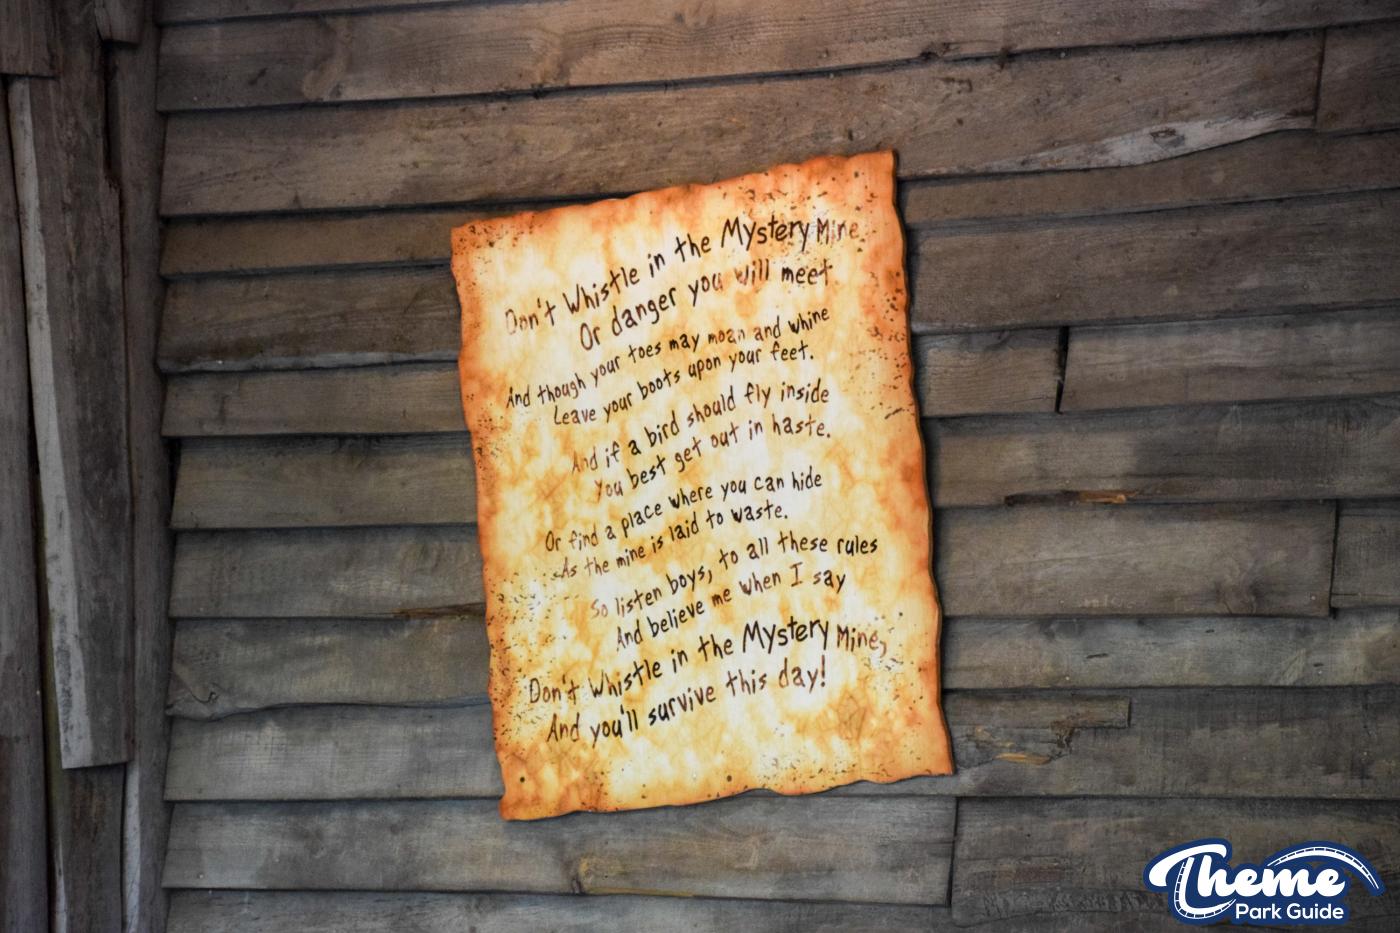 Don't Whistle in the Mystery Mine
Or danger you will meet
And though your toes may moan and whine
Leave your boots upon your feet.
And if a bird should fly inside
You best get out in haste.
Or find a place where you can hide
As the mine is laid to waste.
So listen boys, to all these rules
And believe me when I say
Don't Whistle in the Mystery Mine,
And you'll survive this day!
Theme
Park Guide